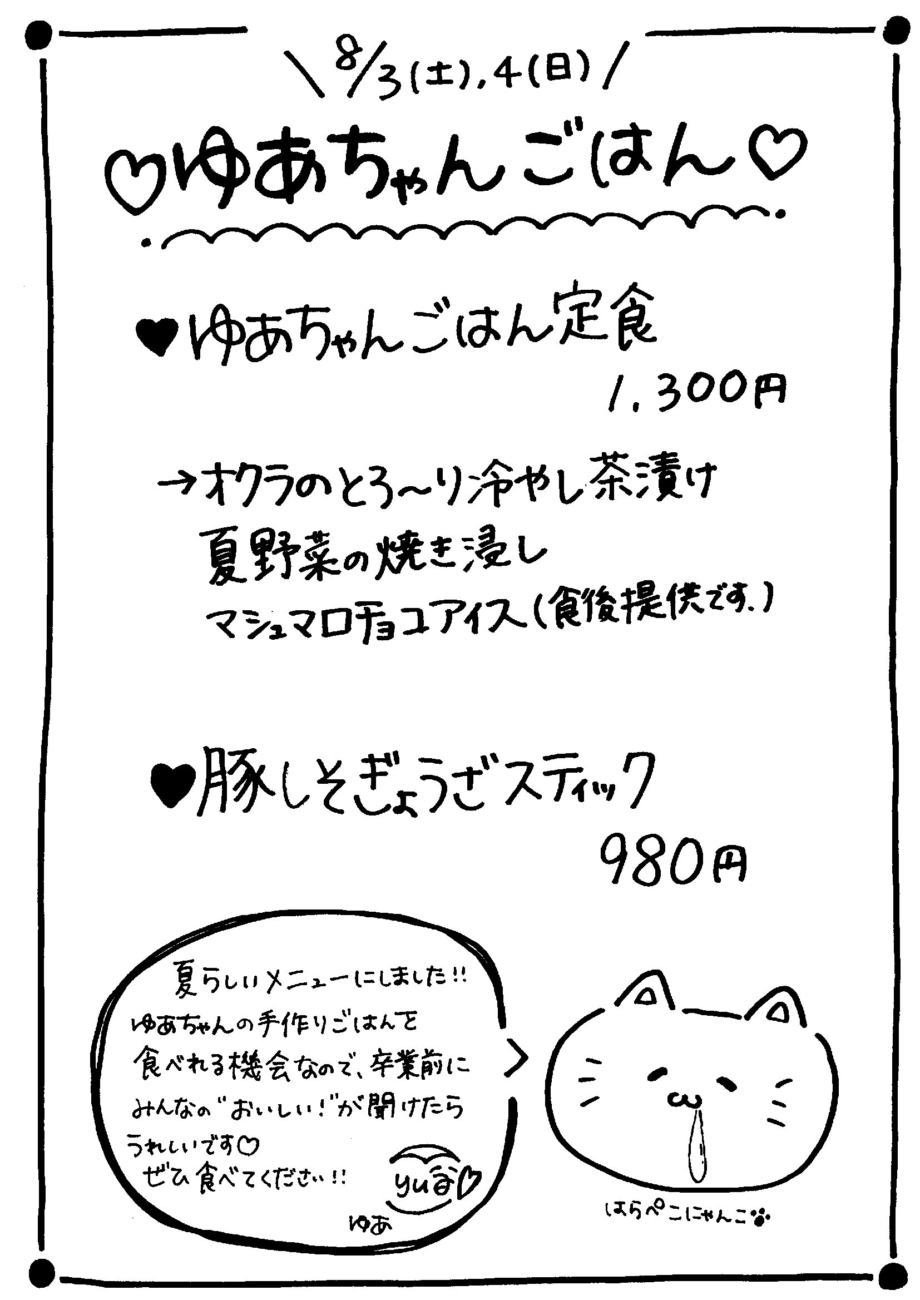 \8/3(土),4(日)/
♡ゆあちゃんごはん♡
♥ゆあちゃんごはん定食
1,300円
→オクラのとろ〜り冷やし茶漬け
夏野菜の焼き浸し
マシュマロチョコアイス(食後提供です。)
♥豚しそぎょうざスティック
980円
夏らしいメニューにしました!!
ゆあちゃんの手作りごはんを
食べれる機会なので、卒業前に
みんなの"おいしい!"が聞けたら
うれしいです♡
ぜひ食べてください!!
yuあ♡
ゆあ
はらペこにゃんこ🐾